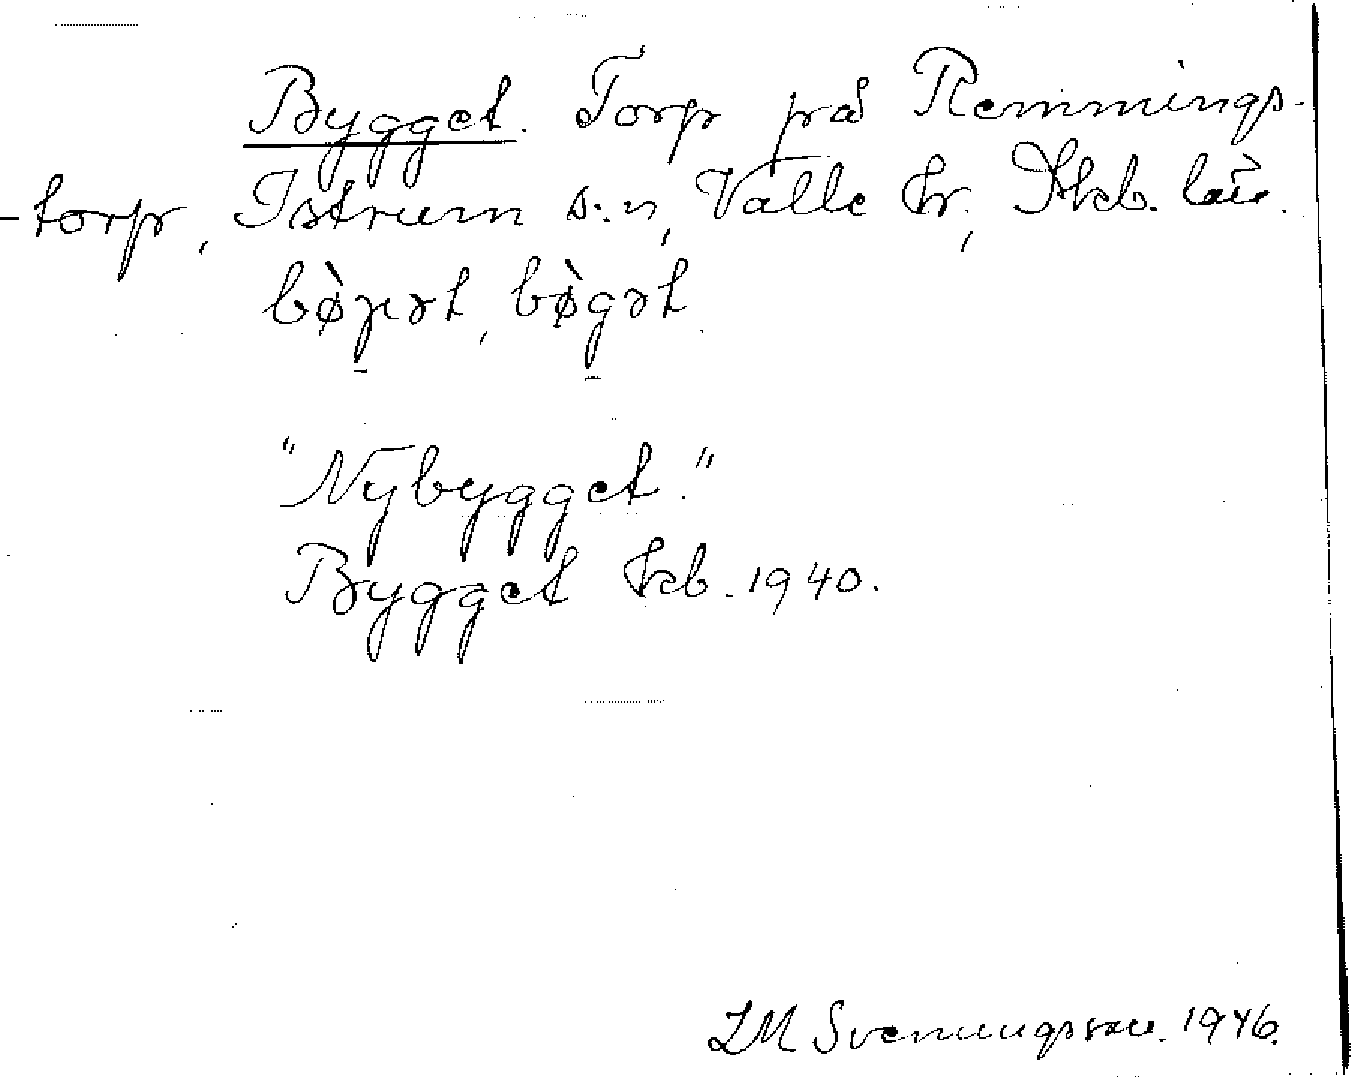 Bygget. Torp på Remmings-
-torp, Istrum s:n, Valle hr, Skb. län.
bø̀gət, bø̀gət
"Nybygget."
Bygget kb. 1940.
LM Svenungsson. 1946.